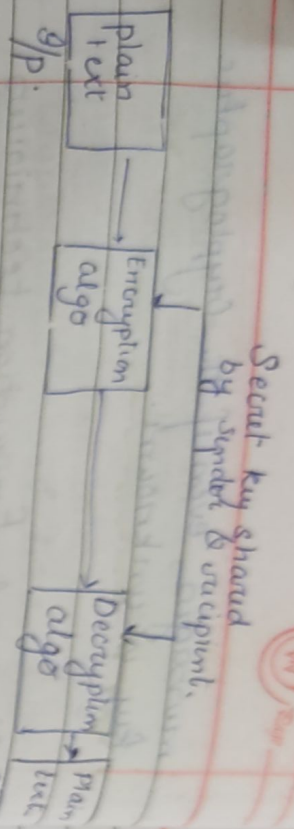 Secret key shared
by sender & recipient.
plain
text
I/p.
Encryption
algo
Decryption
algo
Plain
text